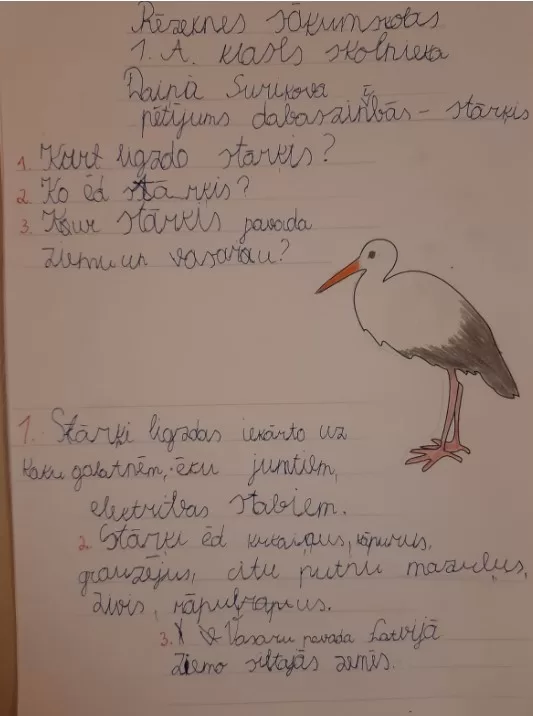 Rēzeknes sākumskolas
1. A. klases skolnieka
Daiņa Surikova
pētījums dabaszinībās - stārķis
1. Kur ligzdo stārķis?
2. Ko ēd stārķis?
3. Kur stārķis pavada
ziemu un vasarau?
1. Stārķi ligzdas iekārto uz
koku galotnēm, ēku jumtiem,
elektrības stabiem.
2. Stārķi ēd kukaiņus, kāpurus,
grauzējus, citu putnu mazuļus,
zivis, rāpuļrapņus.
3. Vasaru pavada Latvijā
Ziemo siltajās zemēs.